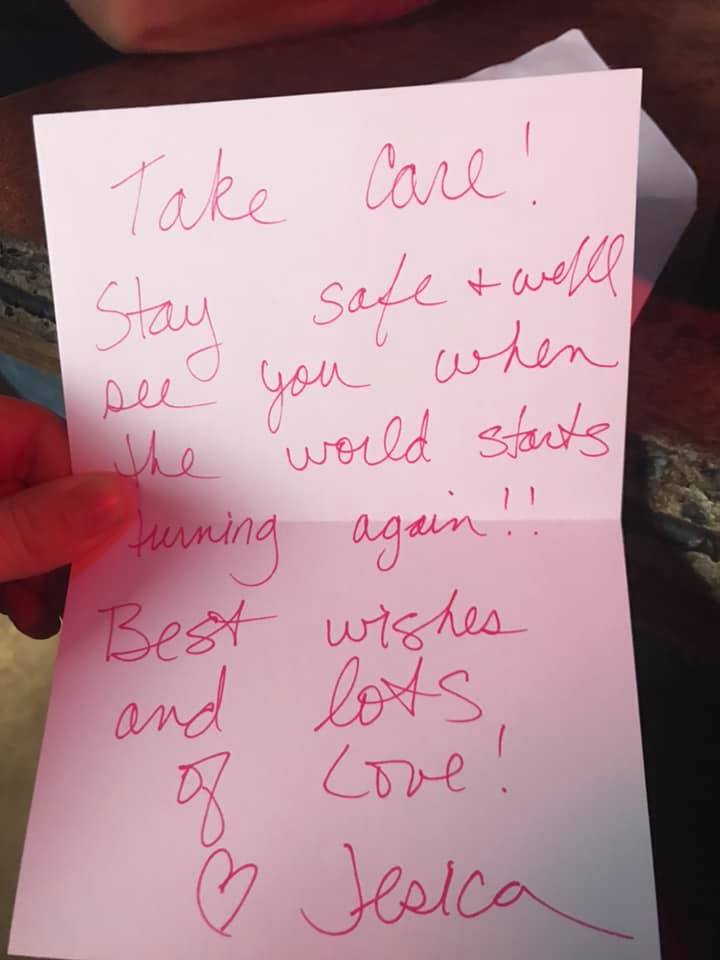 Take Care!
Stay safe + we'll
see you when
the world starts
turning again!!
Best wishes
and lots
of Love!
♡ Jesica